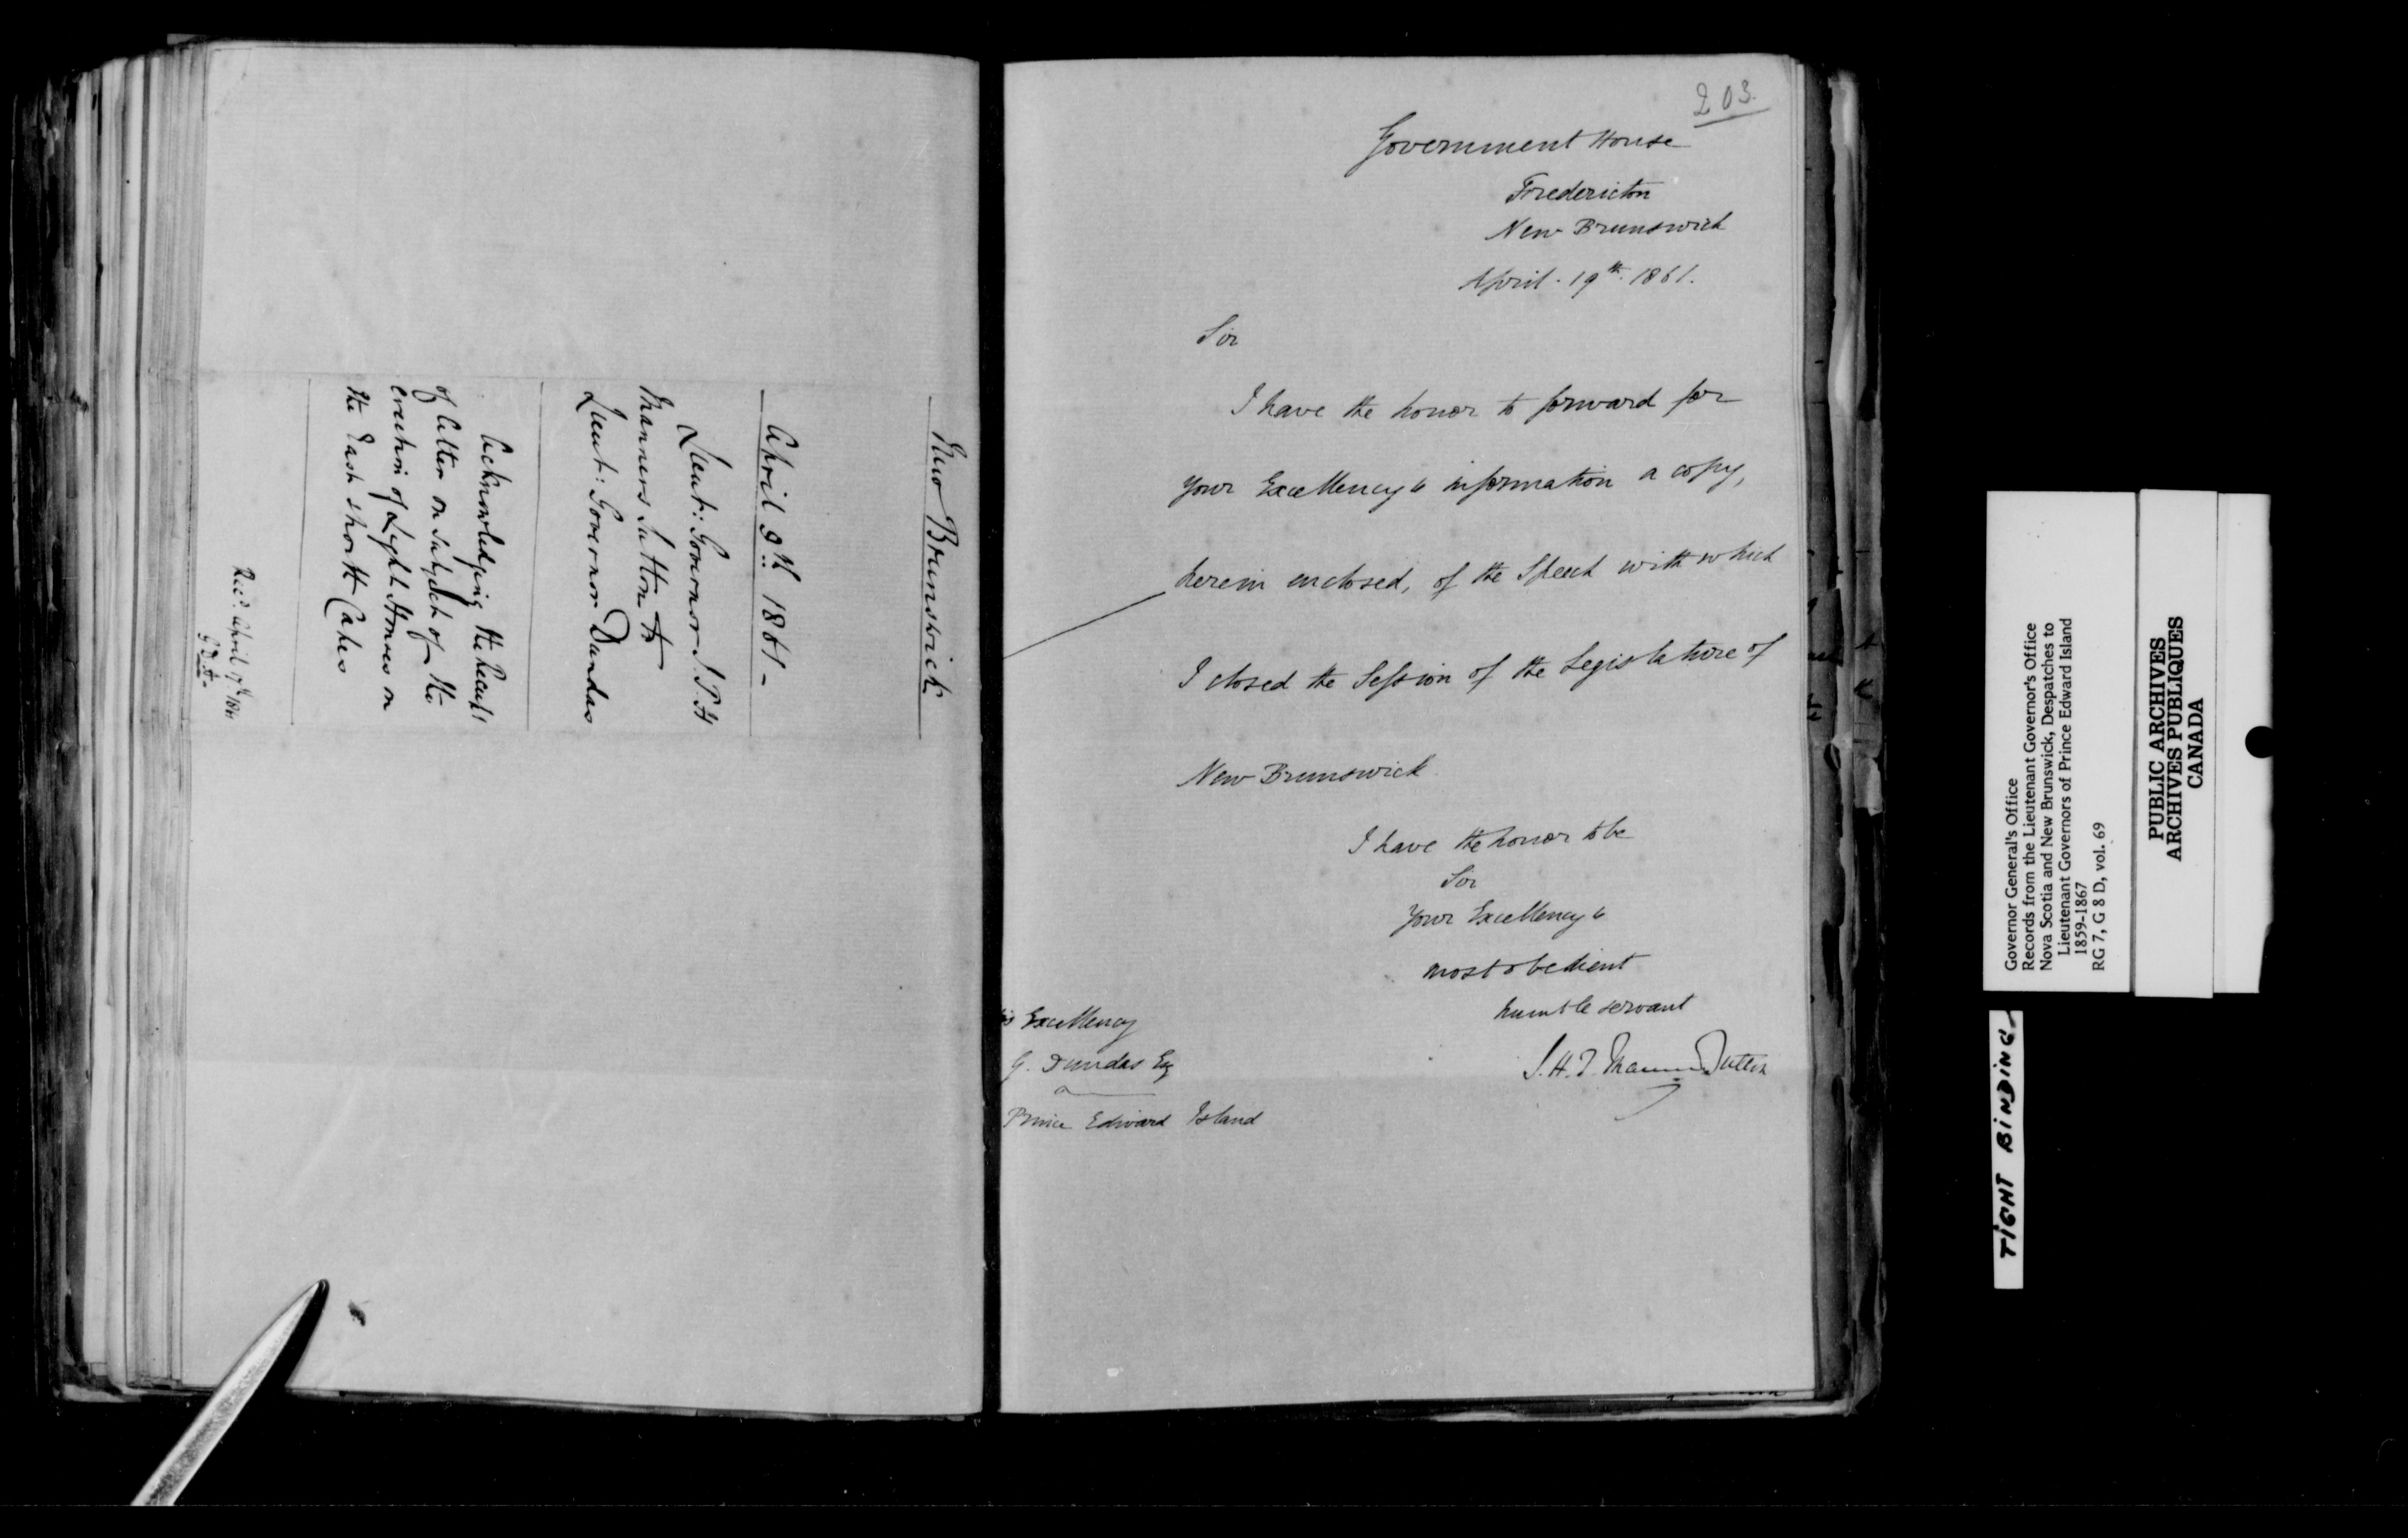 New Brunswick
April 9th 1861 -
Lieut: Governor J. H. T.
Manners Sutton to
Lieut: Governor Dundas
Acknowledging the Receipt
of letter on subject of the
erection of Light Houses on
the East & North Capes
Recd. April 17th /61
G D
203.
Government House
Fredericton
New Brunswick
April. 19th. 1861.
Sir
I have the honor to forward for
your Excellency's information a copy,
herein enclosed, of the Speech with which
I closed the Session of the Legislature of
New Brunswick.
I have the honor to be
Sir
Your Excellency's
most obedient
humble servant
J. H. T. Manners Sutton
His Excellency
G. Dundas Esq
Prince Edward Island
Governor General's Office
Records from the Lieutenant Governor's Office
Nova Scotia and New Brunswick, Despatches to
Lieutenant Governors of Prince Edward Island
1859-1867
RG 7, G 8 D, vol. 69
PUBLIC ARCHIVES
ARCHIVES PUBLIQUES
CANADA
TIGHT BINDING